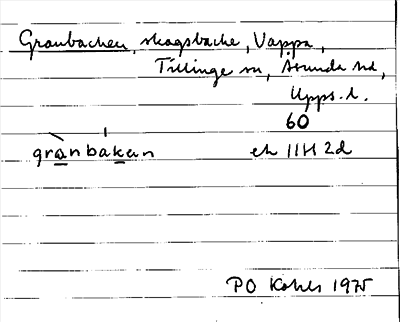 Granbacken, skogsbacke, Vappa,
Tillinge sn, Åsunda hd,
Upps. l.
60
granbakan ek 11H 2d
PO Kohls 1975